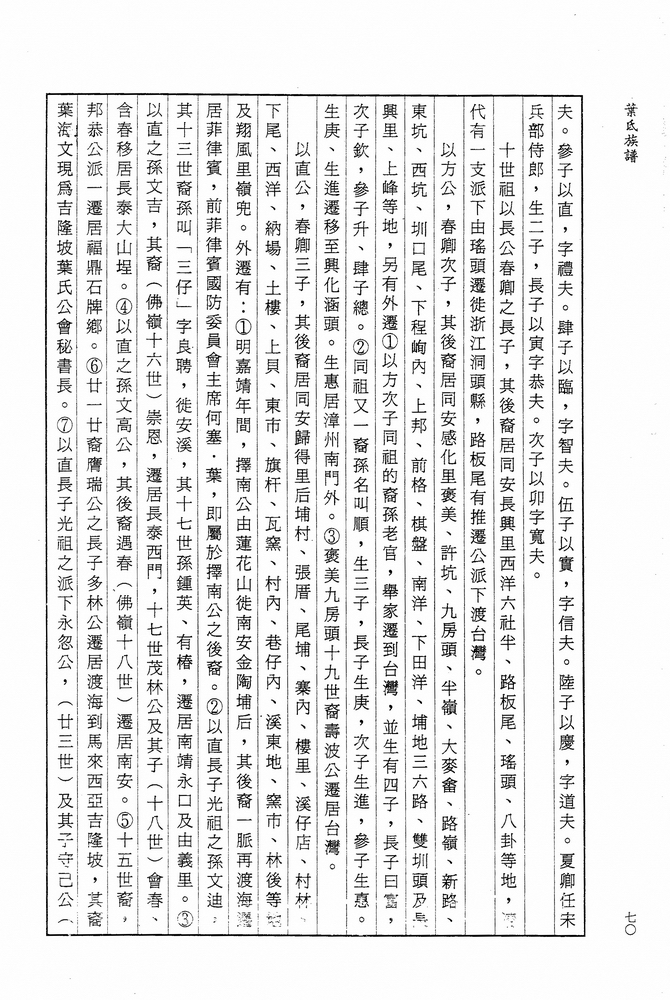 葉氏族譜
夫。參子以直，字禮夫。肆子以臨，字智夫。伍子以實，字信夫。陸子以慶，字道夫。夏卿任末
兵部侍郎，生二子，長子以寅字恭夫。次子以卯字寬夫。
十世祖以長公春卿之長子，其後裔居同安長興里西洋六社半、路板尾、瑤頭、八卦等地，
代有一支派下由瑤頭遷徙浙江洞頭縣，路板尾有推遷公派下渡台灣。
以方公，春卿次子，其後裔居同安感化里褒美、許坑、九房頭、半嶺、大麥畬、路嶺、新路、
東坑、西坑、圳口尾、下程峋內、上邦、前格、棋盤、南洋、下田洋、埔地三六路、雙圳頭及長
興里、上峰等地，另有外遷①以方次子同祖的裔孫老官，舉家遷到台灣，並生有四子，長子曰富，
次子欽，參子升、肆子總。②同祖又一裔孫名叫順，生三子，長子生庚，次子生進，參子生惠。
生庚、生進遷移至興化涵頭。生惠居漳州南門外。③褒美九房頭十九世裔壽波公遷居台灣。
以直公，春卿三子，其後裔居同安歸得里后埔村、張厝、尾埔、寨內、樓里、溪仔店、村林、
下尾、西洋、納場、土樓、上貝、東市、旗杆、瓦窯、村內、巷仔內、溪東地、窯市、林後等地
及翔風里嶺兜。外遷有：①明嘉靖年間，擇南公由蓮花山徙南安金陶埔后，其後裔一脈再渡海遷
居菲律賓，前菲律賓國防委員會主席何塞·葉，即屬於擇南公之後裔。②以直長子光祖之孫文迪，
其十三世裔孫叫「三仔」字良聘，徙安溪，其十七世孫鍾英、有椿，遷居南靖永口及由義里。③
以直之孫文吉，其裔（佛嶺十六世）崇恩，遷居長泰西門，十七世茂林公及其子（十八世）會春、
含春移居長泰大山埕。④以直之孫文高公，其後裔遇春（佛嶺十八世）遷居南安。⑤十五世裔，
邦恭公派一遷居福鼎石牌鄉。⑥廿一廿裔膺瑞公之長子多林公遷居渡海到馬來西亞吉隆坡，其裔
葉海文現爲吉隆坡葉氏公會秘書長。⑦以直長子光祖之派下永忽公，（廿三世）及其子守己公（
七〇